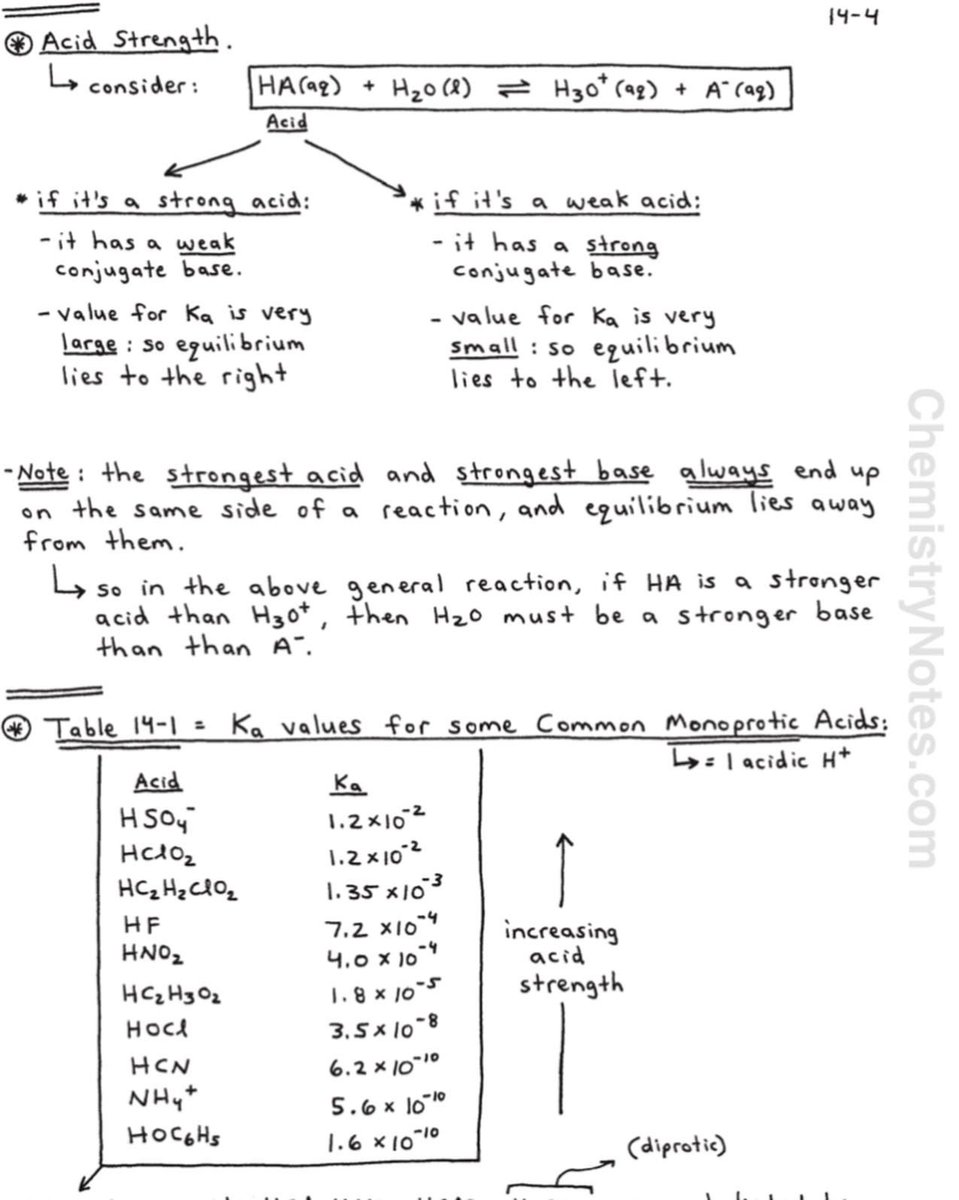 14-4
* Acid Strength.
↳ consider: HA(aq) + H₂O(l) ⇌ H₃O⁺(aq) + A⁻(aq)
Acid
* if it's a strong acid:
- it has a weak
conjugate base.
- value for Ka is very
large : so equilibrium
lies to the right
* if it's a weak acid:
- it has a strong
conjugate base.
- value for Ka is very
small : so equilibrium
lies to the left.
- Note: the strongest acid and strongest base always end up
on the same side of a reaction, and equilibrium lies away
from them.
↳ so in the above general reaction, if HA is a stronger
acid than H₃O⁺, then H₂O must be a stronger base
than than A⁻.
* Table 14-1 = Ka values for some Common Monoprotic Acids:
↳ = 1 acidic H⁺
Acid Ka
HSO₄⁻ 1.2 × 10⁻²
HClO₂ 1.2 × 10⁻²
HC₂H₂ClO₂ 1.35 × 10⁻³
HF 7.2 × 10⁻⁴
HNO₂ 4.0 × 10⁻⁴
HC₂H₃O₂ 1.8 × 10⁻⁵
HOCl 3.5 × 10⁻⁸
HCN 6.2 × 10⁻¹⁰
NH₄⁺ 5.6 × 10⁻¹⁰
HOC₆H₅ 1.6 × 10⁻¹⁰
increasing
acid
strength
(diprotic)
ChemistryNotes.com